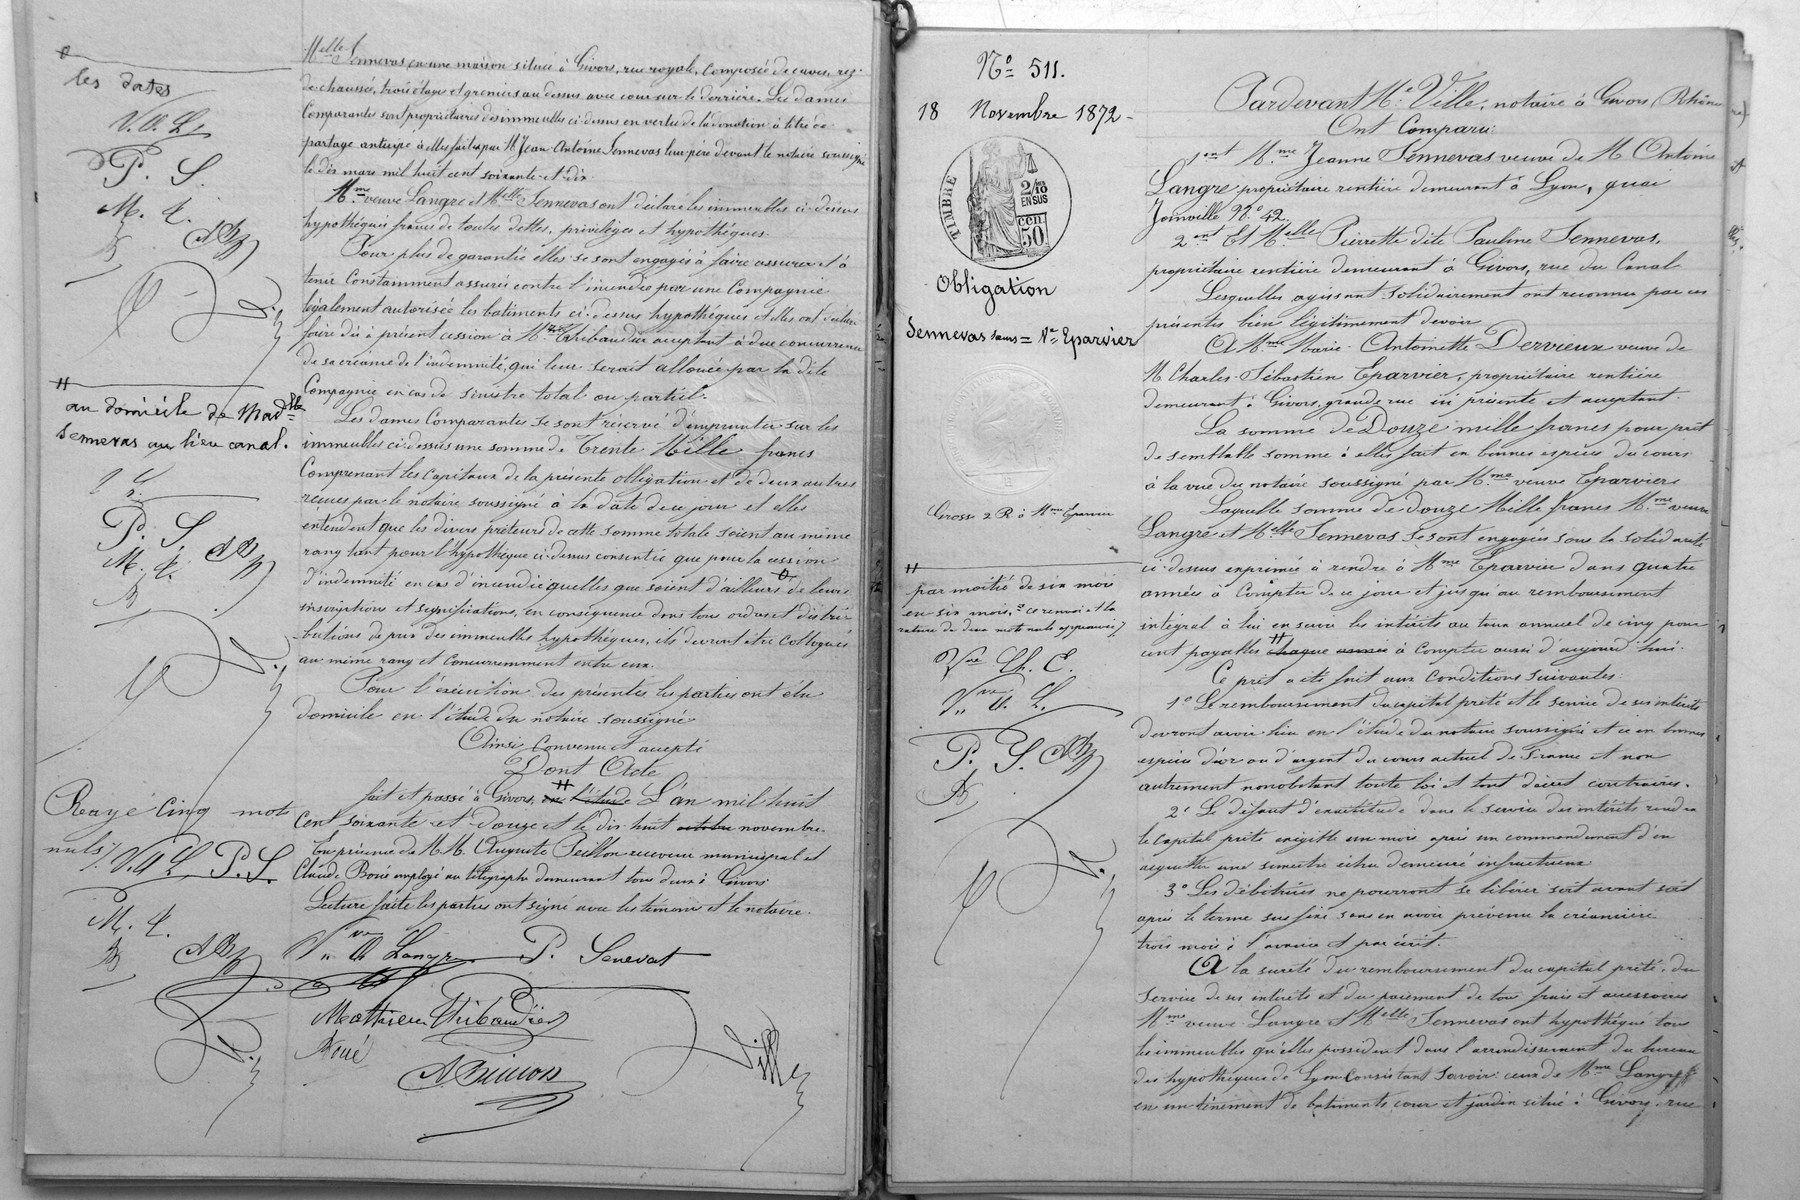 #
les dates
V. A. L.
P. S.
M. t.
#
au domicile de Mad.lle
Sennevas au lieu canal.
P. S.
M. t.
Rayé cinq mot
nuls /. V. A L P. S.
M. t.
Melle Sennevas en une maison située à Givors, rue royale, composée de caves, rez-
de-chaussée, trois étages et greniers au dessus avec cour sur le derrière. Les dames
Comparantes sont propriétaires des immeubles ci-dessus en vertu de la donation à titre de
partage anticipé à elles faite par M. Jean-Antoine Sennevas leur père devant le notaire soussigné
le dix mars mil huit cent soixante-et-dix.
Mme veuve Langre et Melle Sennevas ont déclaré les immeubles ci-dessus
hypothéqués francs de toutes dettes, privilèges et hypothèques.
Pour plus de garantie elles se sont engagées à faire assurer et à
tenir Constamment assurés contre l'incendie par une Compagnie
légalement autorisée les batiments ci-dessus hypothéqués et elles ont déclaré
faire dès à présent cession à Mme Thibaudier acceptant à due concurrence
de sa créance de l'indemnité, qui leur serait allouée par la dite
Compagnie en cas de sinistre total ou partiel.
Les dames Comparantes se sont réservé d'emprunter sur les
immeubles ci-dessus une somme de Trente Mille francs
Comprenant les Capitaux de la présente obligation et de deux autres
reçues par le notaire soussigné à la date de ce jour et elles
entendent que les divers prêteurs de cette somme totale soient au même
rang tant pour l'hypothèque ci-dessus consentie que pour la cession
d'indemnité en cas d'incendie quelles que soient d'ailleurs de leurs
inscriptions et significations, en conséquence dans tous ordres et distri-
butions de prix des immeubles hypothéqués, ils devront être colloqués
au même rang et Concurremment entre eux.
Pour l'exécution des présentes les parties ont élu
domicile en l'étude du notaire soussigné
Ainsi Convenu et accepté
Dont Acte
fait et passé à Givors, # en l'étude L'an mil huit
Cent soixante-et-douze et le dix huit octobre novembre.
En présence de M.M. Auguste Peillon receveur municipal et
Claude Boué employé au télégraphe demeurant tous deux à Givors
Lecture faite les parties ont signé avec les témoins et le notaire.
Vve A Langre P. Senevat
Mathieu Thibaudier
Boué
Ville
No 511.
18 Novembre 1872 -
TIMBRE
2/10
EN SUS
cen
50
Obligation
Sennevas sœurs = Ve Eparvier
Grosse 2 R à Mme Eparvier
#
par moitié de six mois
en six mois, ce renvoi et la
rature de deux mots nuls approuvés /
Vve Ch. E.
Vve A. L.
P. S.
Pardevant Me Ville, notaire à Givors (Rhône
Ont Comparu:
1ent Mme Jeanne Sennevas veuve de M Antoine
Langre propriétaire rentière demeurant à Lyon, quai
Joinville No 42.
2ent Et Melle Pierrette dite Pauline Sennevas,
propriétaire rentière demeurant à Givors, rue du Canal
Lesquelles agissant solidairement ont reconnu par ces
présentes bien légitimement devoir
A Mme Marie-Antoinette Dervieux veuve de
M Charles-Sébastien Eparvier, propriétaire rentière
demeurant à Givors, grande rue ici présente et acceptant.
La somme de Douze mille francs pour prêt
de semblable somme à elles fait en bonnes espèces du cours
à la vue du notaire soussigné par Mme veuve Eparvier
Laquelle somme de douze Mille francs Mme veuve
Langre et Melle Sennevas se sont engagées sous la solidarité
ci-dessus exprimée à rendre à Mme Eparvier dans quatre
années à Compter de ce jour et jusqu'au remboursement
intégral à lui en servir les intérêts au taux annuel de cinq pour
cent payables # chaque année à Compter aussi d'aujourd'hui.
Ce prêt a été fait aux Conditions suivantes:
1o Le remboursement du capital prêté et le service de ses intérêts
devront avoir lieu en l'étude du notaire soussigné et ce en bonnes
espèces d'or ou d'argent du cours actuel de France et non
autrement nonobstant toute loi et tout décret contraires.
2o Le défaut d'exactitude dans le service des intérêts rendra
le capital prêté exigible un mois après un commandement d'en
acquitter une semestre échu demeuré infructueux
3o Les débitrices ne pourront se libérer soit avant soit
après le terme sus fixé sans en avoir prévenu la créancière
trois mois à l'avance et par écrit.
A la sureté du remboursement du capital prêté, du
service de ses intérêts et du paiement de tous frais et accessoires
Mme veuve Langre et Melle Sennevas ont hypothéqué tous
les immeubles qu'elles possèdent dans l'arrondissement du bureau
des hypothèques de Lyon Consistant savoir: ceux de Mme Langre
en un ténement de batiments, cour et jardin situé à Givors, rue